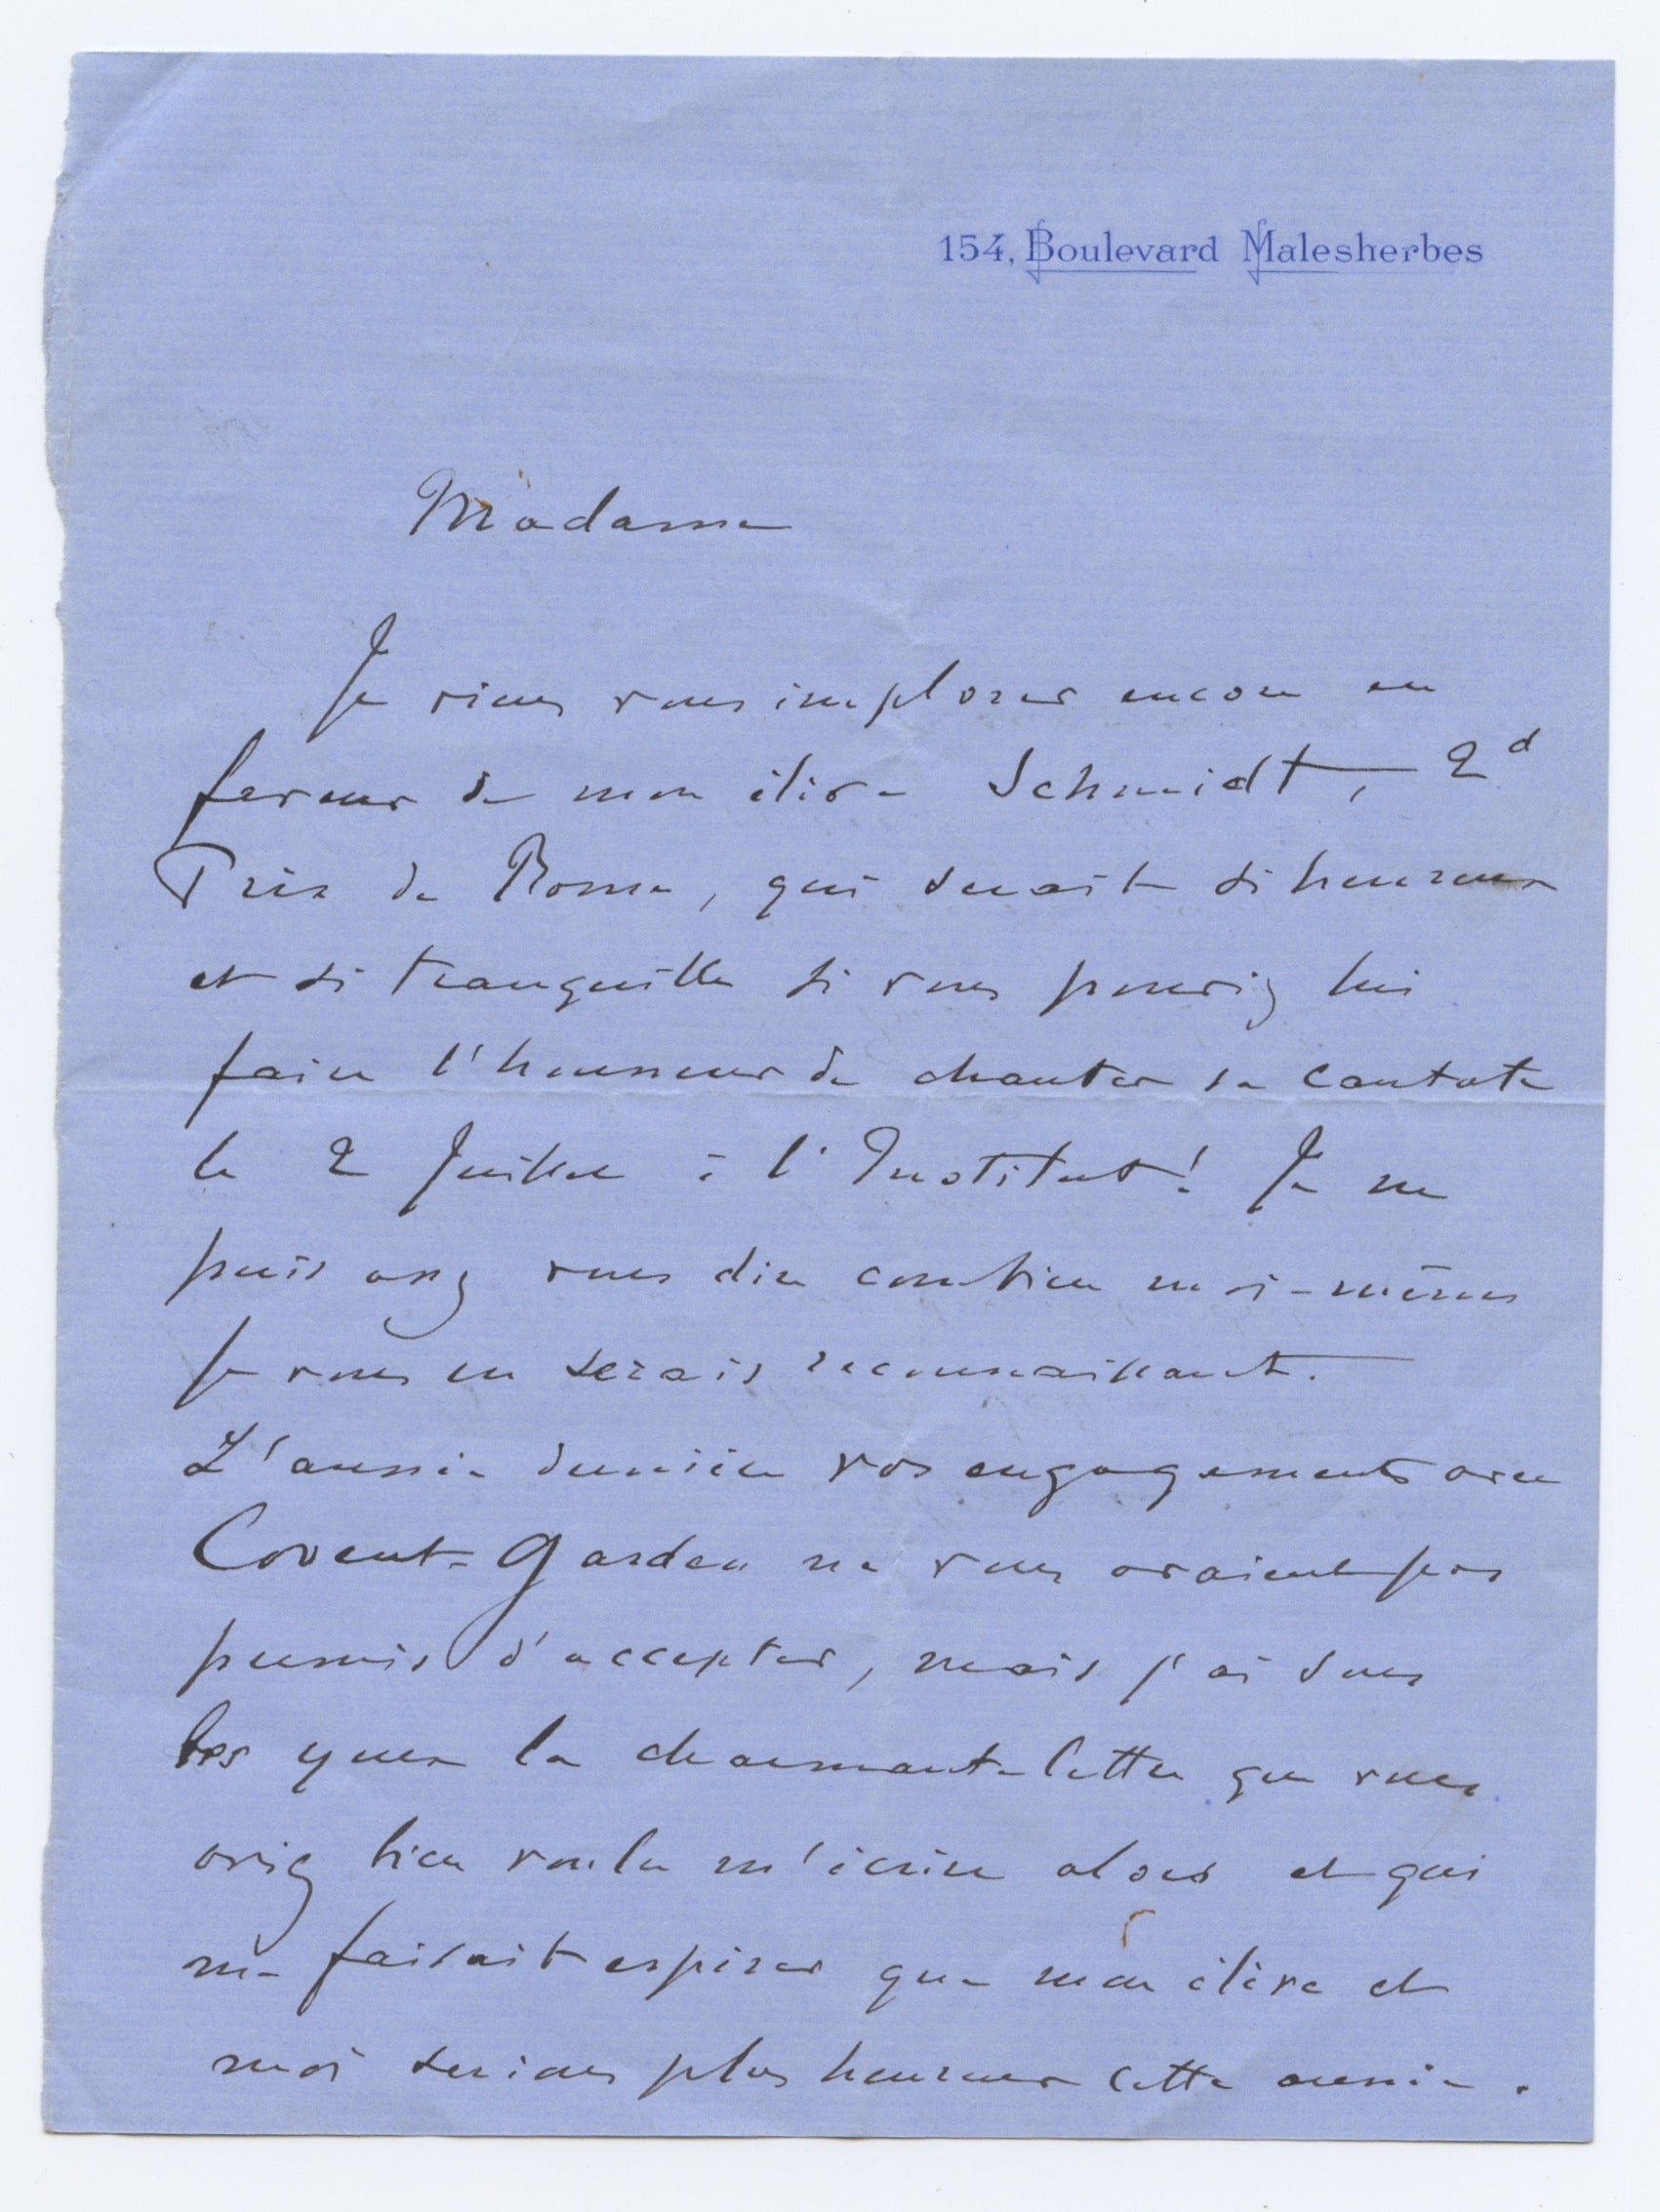 154, Boulevard Malesherbes
Madame
Je viens vous implorer encore en
faveur de mon élève Schmidt, 2d
Prix de Rome, qui serait si heureux
et si tranquille si vous pouviez lui
faire l'honneur de chanter sa cantate
le 2 Juillet à l'Institut! Je ne
puis assez vous dire combien moi-même
je vous en serais reconnaissant.
L'année dernière vos engagements avec
Covent-Garden ne vous avaient pas
permis d'accepter, mais j'ai sous
les yeux la charmante lettre que vous
aviez bien voulu m'écrire alors et qui
me faisait espérer que mon élève et
moi serions plus heureux cette année.